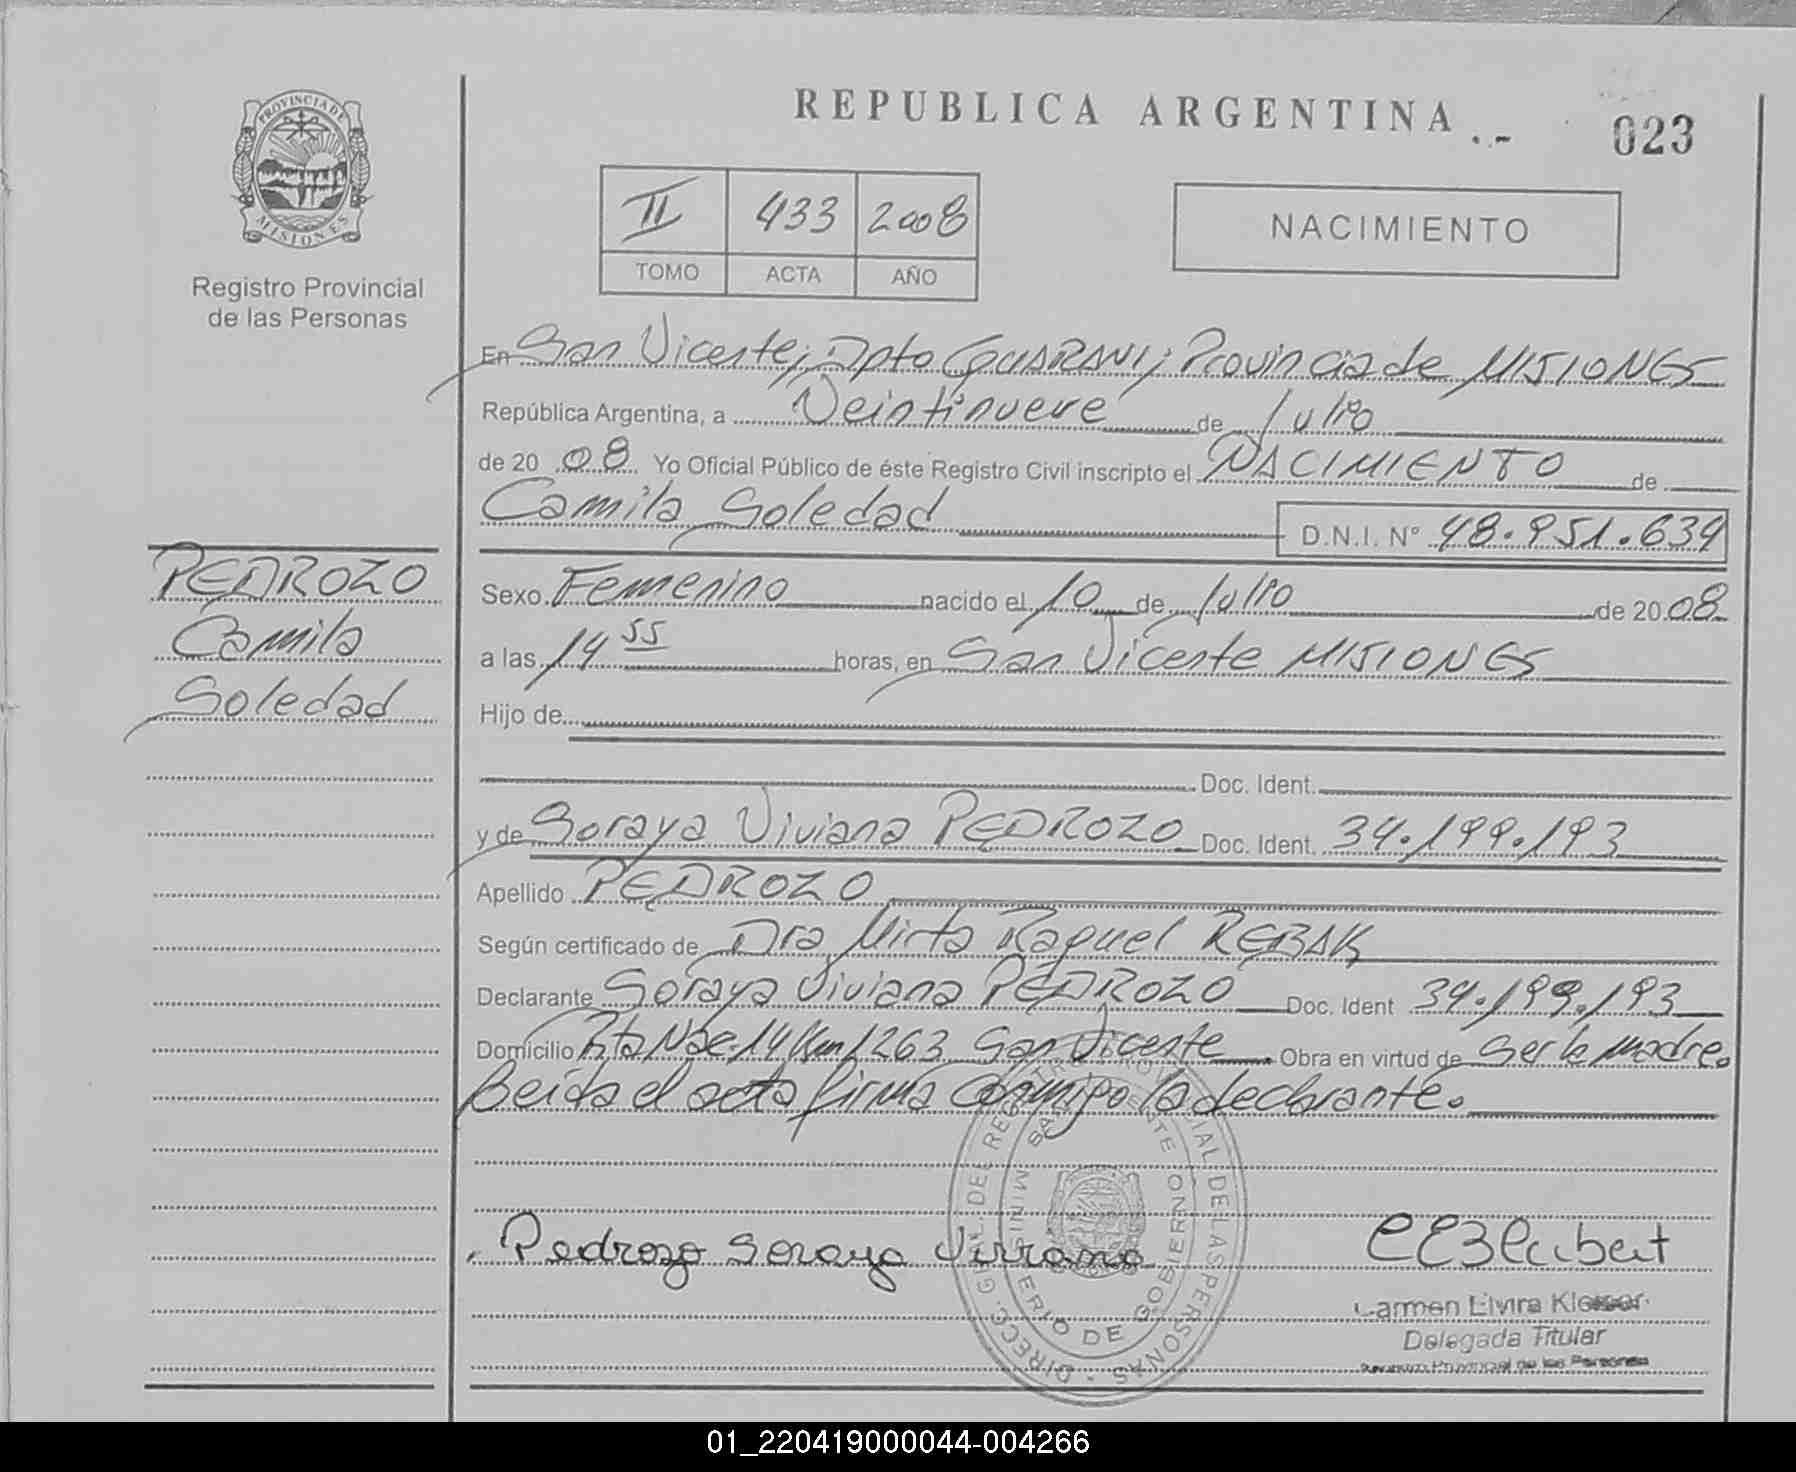 REPUBLICA ARGENTINA
023
PROVINCIA DE
MISIONES
Registro Provincial
de las Personas
II 433 2008
TOMO ACTA AÑO
NACIMIENTO
En San Vicente, Dpto GUARANI, Provincia de MISIONES
República Argentina, a Veintinueve de Julio
de 2008 Yo Oficial Público de éste Registro Civil inscripto el NACIMIENTO de
Camila Soledad D.N.I. Nº 48.951.634
PEDROZO
Camila
Soledad
Sexo Femenino nacido el 10 de Julio de 2008
a las 14 55 horas, en San Vicente MISIONES
Hijo de
Doc. Ident.
y de Soraya Viviana PEDROZO Doc. Ident. 34.199.193
Apellido PEDROZO
Según certificado de Dra Mirta Raquel REBAK
Declarante Soraya Viviana PEDROZO Doc. Ident 34.199.193
Domicilio Rta Nac. 14 Km 1263 San Vicente Obra en virtud de ser la madre.
Leida el acta firma conmigo la declarante.
Pedrozo Soraya Viviana
Carmen Elvira
Delegada Titular
Registro Provincial de las Personas
DIRECC. GRAL. DE REGISTRO PROVINCIAL DE LAS PERSONAS
MINISTERIO DE GOBIERNO
SAN VICENTE
01_220419000044-004266